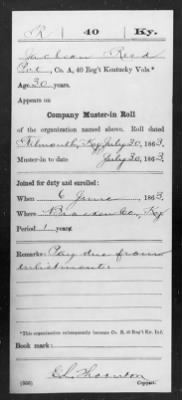 R 40 Ky.
Jackson Reed
Pvt, Co. A, 40 Reg't Kentucky Vols*
Age 30 years.
Appears on
Company Muster-in Roll
of the organization named above. Roll dated
Falmouth, Ky, July 30, 1863.
Muster-in to date July 30, 1863.
Joined for duty and enrolled:
When 6 June, 1863.
Where Bracken Co, Ky
Period 1 years.
Remarks: Pay due from
enlistment.
*This organization subsequently became Co. 40 Reg't Ky. Inf.
Book mark:
Thornton
(356) Copyist.